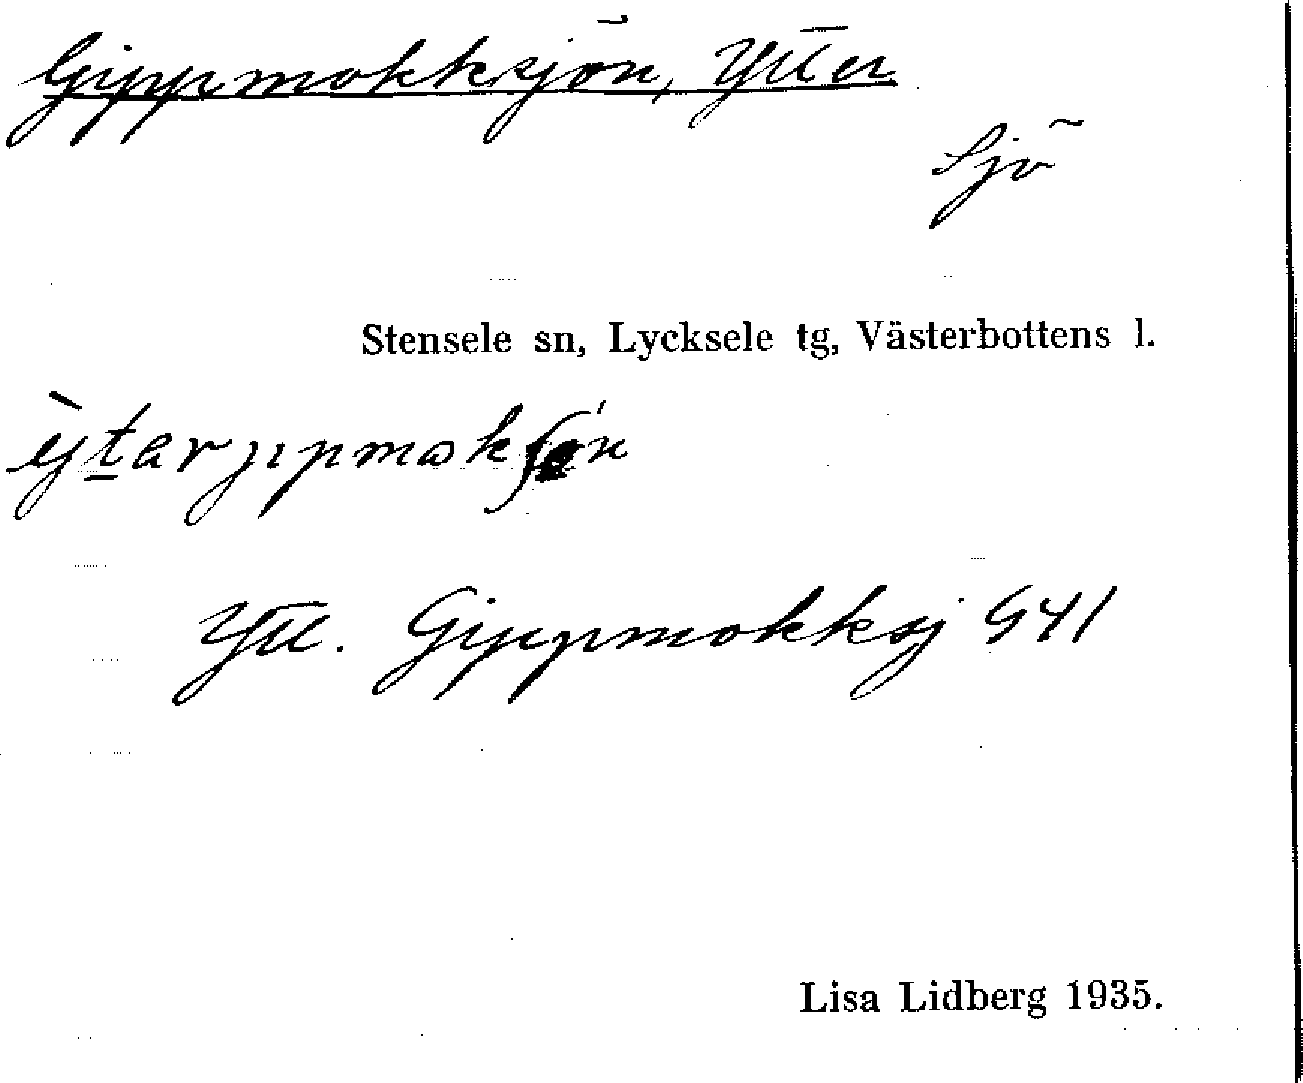 Gippmokksjön, Ytter
Sjö
Stensele sn, Lycksele tg, Västerbottens l.
Ytt. Gippmokksj G41
Lisa Lidberg 1935.